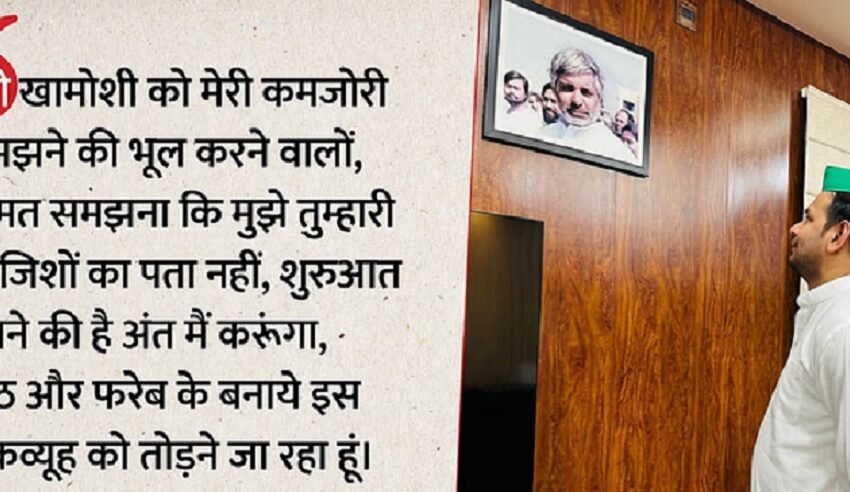 खामोशी को मेरी कमजोरी
की भूल करने वालों,
मत समझना कि मुझे तुम्हारी
का पता नहीं, शुरुआत
की है अंत मैं करूंगा,
और फरेब के बनाये इस
को तोड़ने जा रहा हूं।